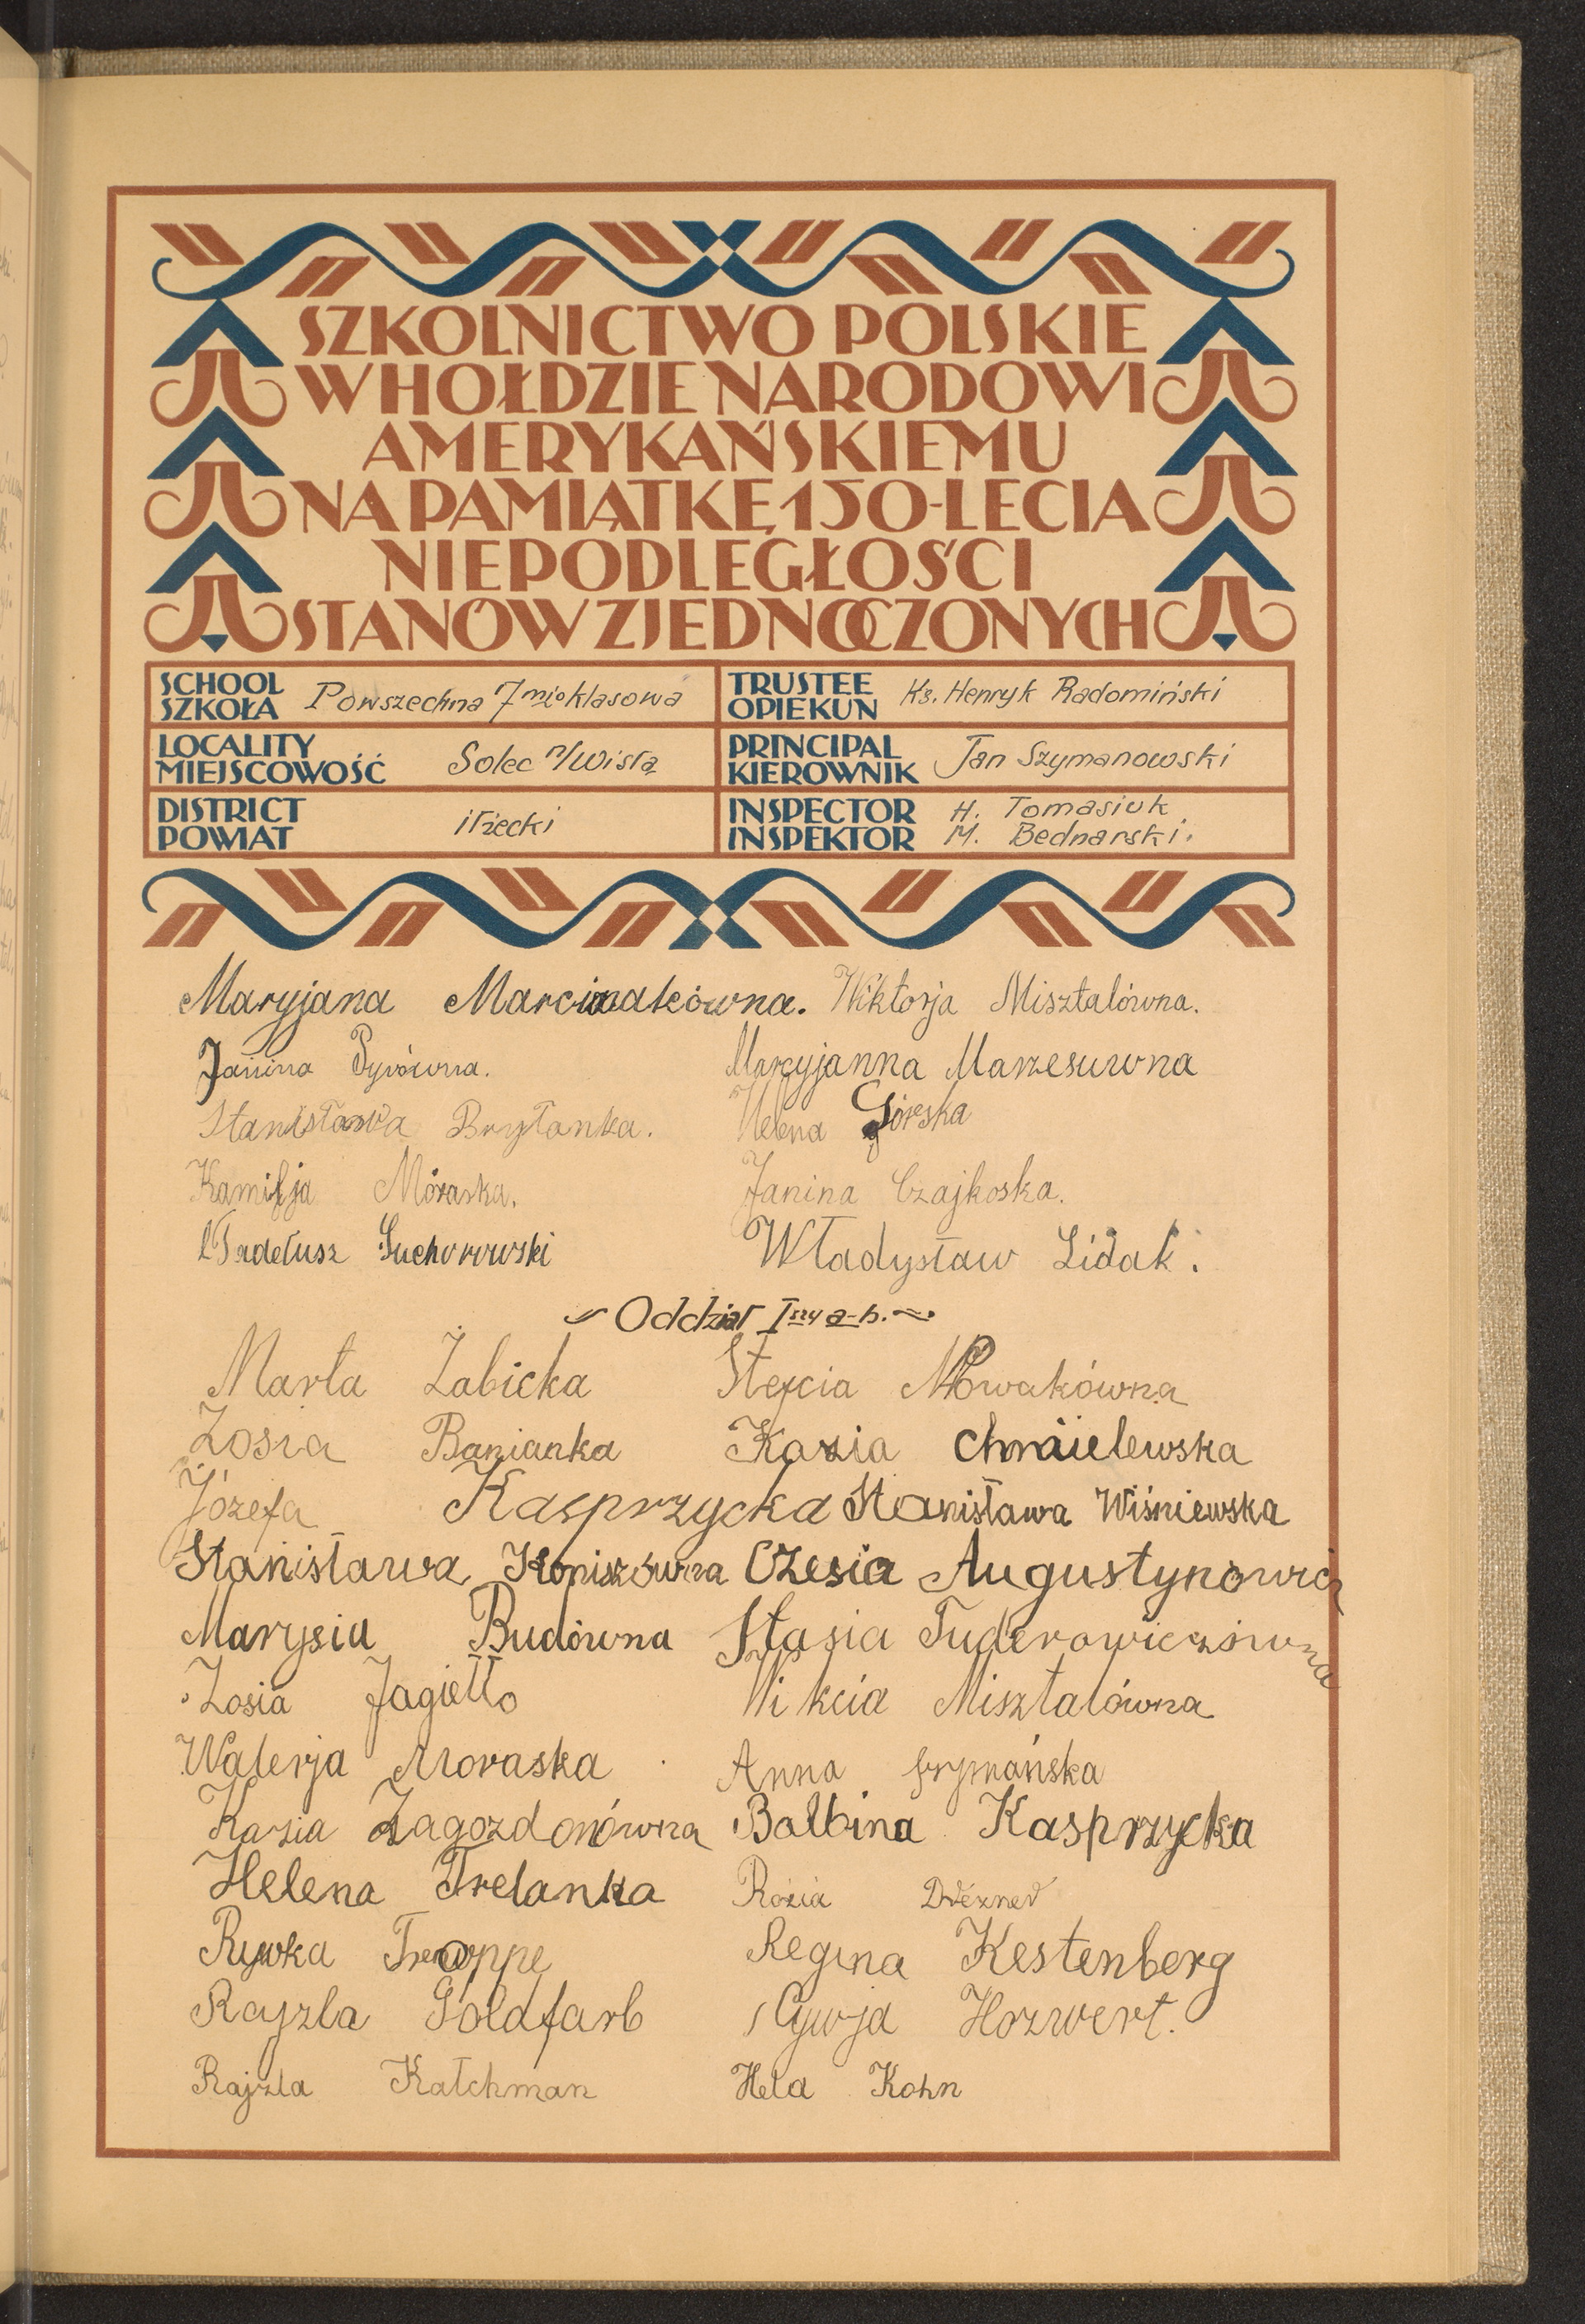 SZKOLNICTWO POLSKIE
W HOŁDZIE NARODOWI
AMERYKAŃSKIEMU
NA PAMIĄTKĘ 150-LECIA
NIEPODLEGŁOŚCI
STANÓW ZJEDNOCZONYCH
SCHOOL
SZKOŁA
Powszechna 7mio klasowa
TRUSTEE
OPIEKUN
Ks. Henryk Radomiński
LOCALITY
MIEJSCOWOŚĆ
Solec n/Wisłą
PRINCIPAL
KIEROWNIK
Jan Szymanowski
DISTRICT
POWIAT
iłżecki
INSPECTOR
INSPEKTOR
H. Tomasiuk
M. Bednarski.
Maryjana Marciniakówna. Wiktorja Misztalówna.
Janina Pyrówna. Maryjanna Marzesuwna
Stanisława Bryłanka. Helena Górska
Kamilja Móraska. Janina Czajkoska.
Tadeusz Suchorowski Władysław Lidak.
Oddział Iszy a-b.
Marta Żabicka Stefcia Nowakówna
Zosia Banianka Kazia Chmielewska
Józefa Kasprzycka Stanisława Wiśniewska
Stanisława Koniszówna Czesia Augustynowicz
Marysia Budówna Stasia Fuderowiczówna
Zosia Jagiełło Wikcia Misztalówna
Walerja Moraska Anna
Kazia Zagozdonówna Balbina Kasprzycka
Helena Trelanka Rózia
Rywka Regina Kestenberg
Rajzla Goldfarb Cywja Horwert.
Rajzla Katchman Hela Kohn